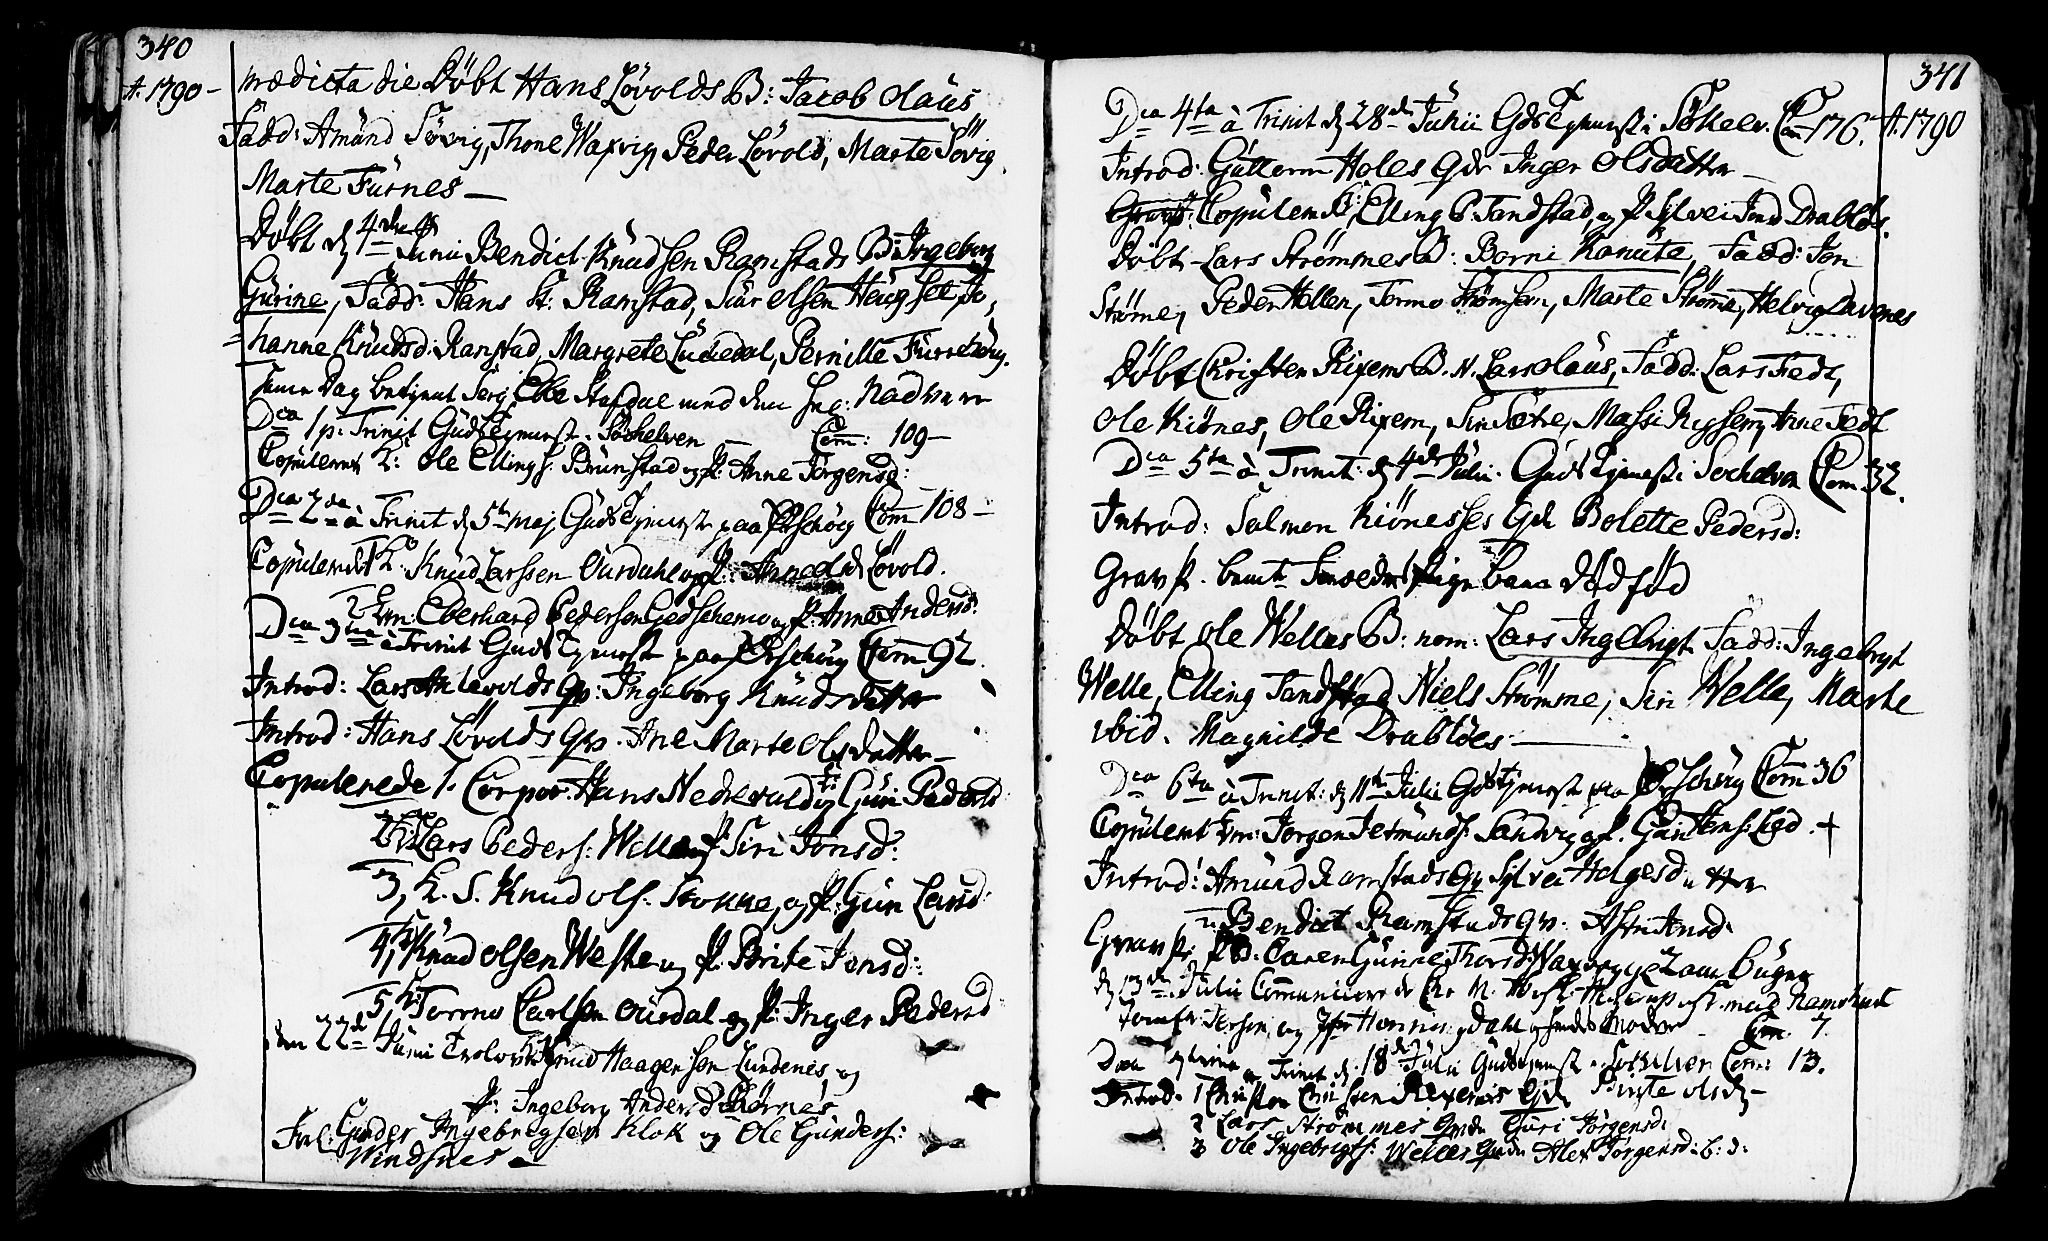 340
A. 1790 -
prædicta die Døbt Hans Løvolds B: Jacob Olaus
Fadd: Amund Søvig, Thone Waxvig, Peder Løvold, Marte Søvig
Marte Furnes —
Døbt d. 4de Junii Bendict Knudsen Ramstads B: Ingeborg
Gurine, Fadd: Hans K: Ramstad, Siur Olsen Haugset, Jo,
= hanne Knudsd: Ramstad, Margrete Lundal, Pernille Furrehoug.
samme Dag betient Serg: Elle med den
Dca 1 p. Trinit Guds Tjeneste i Søckelven — Com: 109 —
Copuleret K: Ole Ellings. Brunstad og P: Anne Jørgensd:
Dca 2da à Trinit d. 5t Maj Guds Tjeneste paa Ørschoug Com 108 —
Copuleret K: Knud Larssen Ourdahl og P: Anne Løvold.
2 Em: Eberhard Pedersen Giedschemo og P: Anne Andersd:
Dca 3tia à Trinit Guds Tjeneste paa Ørschoug Com 92.
Introd: Lars Andevolds Qv: Ingeborg Knudsdatter
Introd: Hans Løvolds Qv. Ane Marte Olsdatter —
Copulerede 1. Corpor: Hans Nedrevold og Guri Pedersd
2, K: Lars Peders: Welle og P: Siri Jonsd:
3, K. S. Knud Ols. Stokke, og P: Guri Larsd
4, K: Knud Olsen Weste og P: Brite Jonsd:
5, K: Tormo Carlsen Ourdal og P: Inger Pedersd
den 22de Junii Trolovet Knud Haagensen Lundenes, og
P: Ingeborg Andersd Kiørnes,
Forl: Gunder Ingebregsen Klok og Ole Gunders:
Windsnes —
341
A. 1790
Dca 4ta à Trinit d. 28de Junii Gds Tjeneste i Søkelv. Com 176.
Introd: Guttorm Holes Qde Inger Olsdatter —
Copuleret K: Elling P. Tandstad, og P. Sylvei Jond Drabløs.
Døbt Lars Strømmes B: Borni Kanute, Fadd: Jon
Strøme, Peder Hellen, Tormo Strømsem, Marte Strøme, Helvig Lavenes
Døbt Christen Rixems B. N. Lars Olaus, Fadd: Lars Fedt,
Ole Kiønes, Ole Rixem, Siri Sætre, Massi Rygsem, Anne Fedt
Dca 5ta à Trinit: d. 4de Julii. Guds Tjeneste i Sockelven Com 32.
Introd: Salmon Kiønesses Qde Bolette Pedersd:
Grav P. bemte Pigebarn dødfød
Døbt Ole Welles B: nom: Lars Ingebrigt Fadd: Ingebrigt
Welle, Elling Tandstad, Niels Strømme, Siri Welle, Marte
ibid. Magnilde Drabløes —
Dca 6ta à Trinit: d. 11te Julii Gdstjeneste paa Ørschoug Com 36
Copuleret Em: Jørgen Jetmunds. Sandvig og P. Guri
Introd: Amund Ramstads Qv Sylvei Helgesdatter
2. Bendict Ramstads Qv:
Grav P: P B: Caren Gurine Thorsd: Waxvig gl 2 aar
d. 13de Julii Communicerede
Com. 7.
Trinit d. 18de Julii Gudstjeneste i Søckelven Com: 13.
Introd. 1 Christen Christen Rexemes Qde Birte Olsd —
2 Lars Strømmes Qvde Guri Jørgensd:
3 Ole Ingebrigts: Welles Qvde Jørgensd: b: d: